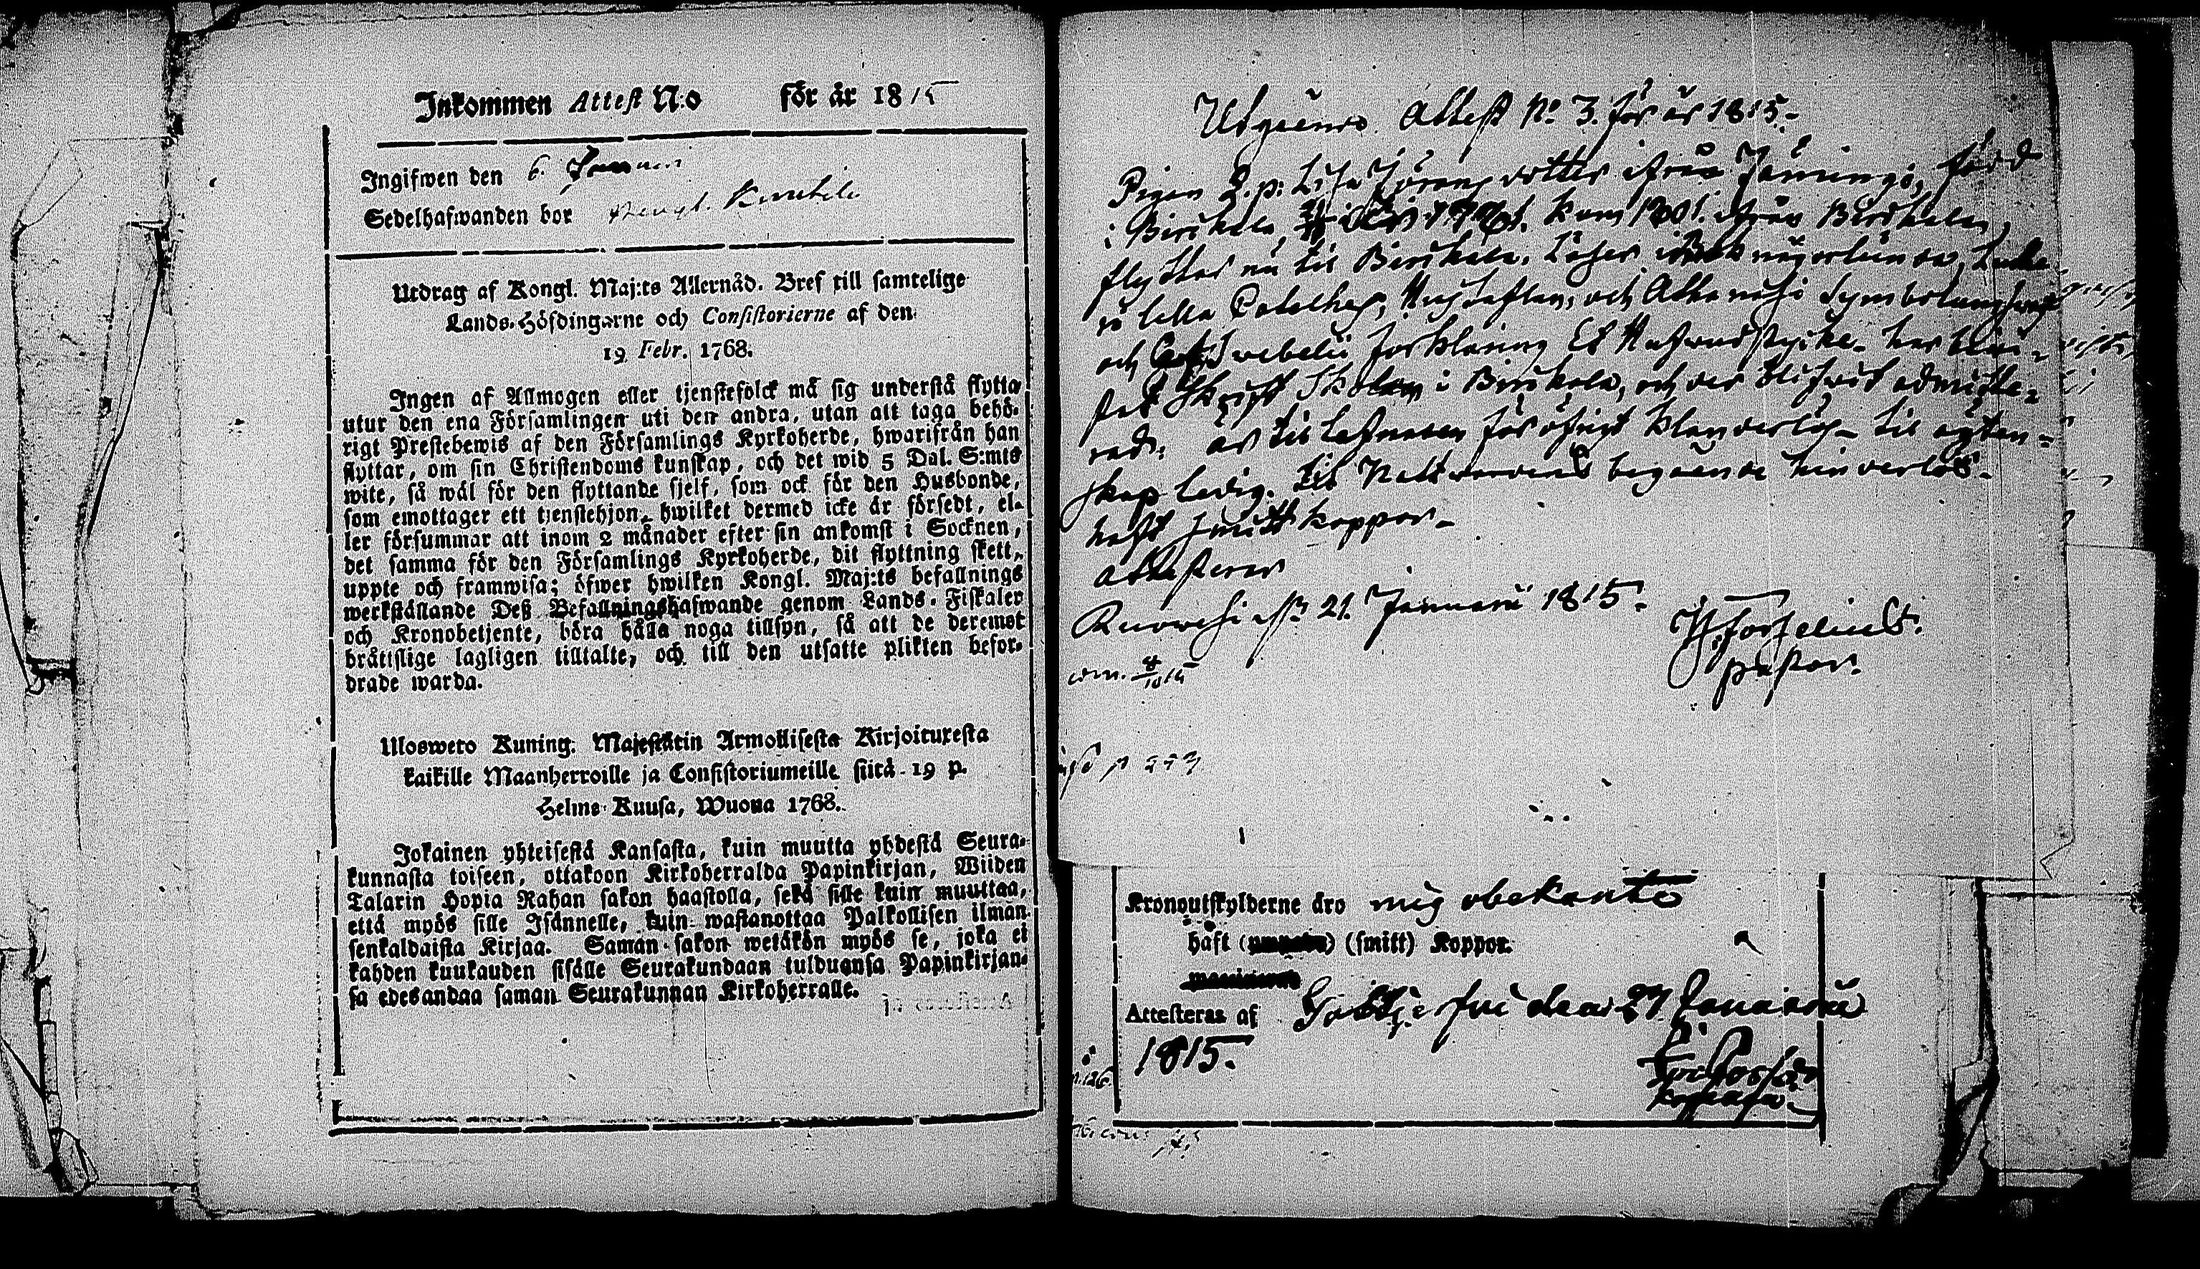 Inkommen Attest N:o för år 1815
Ingifwen den 6. Januari
Sedelhafwanden bor
Utdrag af Kongl. Maj:ts Allernåd. Bref till samtelige
Lands-Höfdingarne och Consistorierne af den
19 Febr. 1768.
Ingen af Allmogen eller tjenstefolck må sig understå flytta
utur den ena Församlingen uti den andra, utan att taga behö-
rigt Prestebewis af den Församlings Kyrkoherde, hwarifrån han
flyttar, om sin Christendoms kunskap, och det wid 5 Dal. S:mts
wite, så wäl för den flyttande sjelf, som ock för den Husbonde,
som emottager ett tjenstehjon, hwilket dermed icke är försedt, el-
ler försummar att inom 2 månader efter sin ankomst i Socknen,
det samma för den Församlings Kyrkoherde, dit flyttning skett,
uppte och framwisa; öfwer hwilken Kongl. Maj:ts befallnings
werkställande Deß Befallningshafwande genom Lands-Fiskaler
och Kronobetjente, böra hålla noga tillsyn, så att de deremot
bråttslige lagligen tilltalte, och till den utsatte plikten befor-
drade warda.
Ulosweto Kuning. Majestätin Armollisesta Kirjoituxesta
kaikille Maanherroille ja Consistoriumeille siitä 19 p.
Helme-Kuusa, Wuona 1768.
Jokainen yhteisestä Kansasta, kuin muutta yhdestä Seura-
kunnasta toiseen, ottakoon Kirkoherralda Papinkirjan, Wiiden
Talarin Hopia Rahan sakon haastolla, sekä sille kuin muuttaa,
että myös sille Isännelle, kuin wastanottaa Palkollisen ilman
senkaldaista Kirjaa. Saman sakon wetäkön myös se, joka ei
kahden kuukauden sisälle Seurakundaan tulduansa Papinkirjan-
sa edesandaa saman Seurakunnan Kirkoherralle.
Utgifne Attest No 3. för år 1815.
Pigan Lisa Jörans dotter ifrån född
i Birkala kom 1801. ifrån Birkala,
flyttar nu til Birkala. Läser i Bok
lilla Catechés, Hustaflan, och Athanasii Symbolum
och Swebelii förklaring Et Hufwudstycke. har
Skrift Skolan i Birkala, och der blifwit admitte-
rad. är til lefnaden för öfrigt klanderlös til ägten-
skap ledig. til Nattwardens begående hinderlös.
haft smitt koppor.
attesterar
21. Januari 1815.
pastor.
Kronoutskylderne äro mig obekante
haft (smitt) Koppor.
Attesteras af den 27 Januarii
1815.